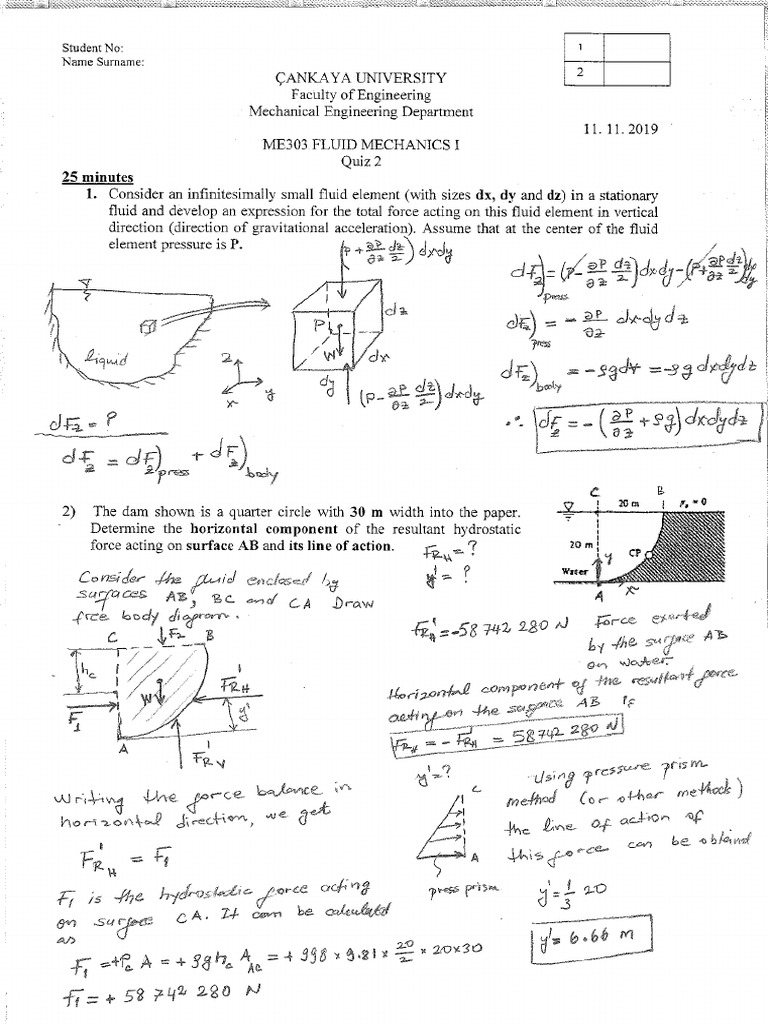 Student No:
Name Surname:
1
2
ÇANKAYA UNIVERSITY
Faculty of Engineering
Mechanical Engineering Department
11. 11. 2019
ME303 FLUID MECHANICS I
Quiz 2
25 minutes
1. Consider an infinitesimally small fluid element (with sizes dx, dy and dz) in a stationary
fluid and develop an expression for the total force acting on this fluid element in vertical
direction (direction of gravitational acceleration). Assume that at the center of the fluid
element pressure is P.
(P + ∂P/∂z dz/2) dxdy
dF_z)press = (P - ∂P/∂z dz/2) dxdy - (P + ∂P/∂z dz/2) dxdy
liquid
z
y
x
P
W
dz
dx
dy
(P - ∂P/∂z dz/2) dxdy
dF_z)press = - ∂P/∂z dxdydz
dF_z)body = -ρgd∀ = -ρg dxdydz
dF_z = ?
∴ dF_z = -(∂P/∂z + ρg) dxdydz
dF_z = dF_z)press + dF_z)body
2) The dam shown is a quarter circle with 30 m width into the paper.
Determine the horizontal component of the resultant hydrostatic
force acting on surface AB and its line of action.
F_RH = ?
y' = ?
C
20 m
B
20 m
y
CP
Water
A
x
Consider the fluid enclosed by
surfaces AB, BC and CA Draw
free body diagram.
C
F2
B
h_c
W
F'_RH
F1
y'
A
F'_RV
F'_RH = -58 742 280 N Force exerted
by the surface AB
on water.
Horizontal component of the resultant force
acting on the surface AB is
F_RH = - F'_RH = 58742 280 N
Writing the force balance in
horizontal direction, we get
F'_RH = F1
F1 is the hydrostatic force acting
on surface CA. It can be calculated
as
F1 = +P_c A = + ρgh_c A_AC = + 998 × 9.81 × 20/2 × 20×30
F1 = + 58 742 280 N
y' = ?
C
A
press prism
Using pressure prism
method (or other methods)
the line of action of
this force can be obtained
y' = 1/3 20
y' = 6.66 m